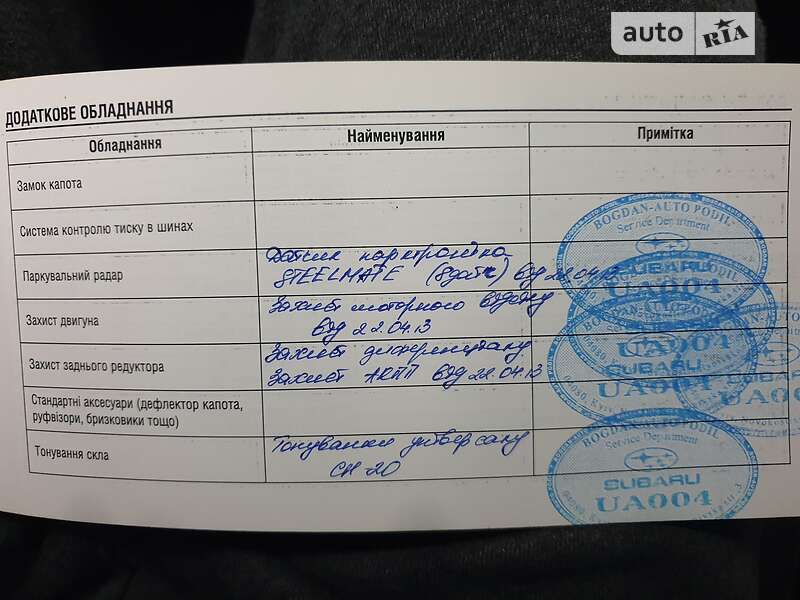 auto RIA
ДОДАТКОВЕ ОБЛАДНАННЯ
Обладнання
Найменування
Примітка
Замок капота
Система контролю тиску в шинах
Паркувальний радар
Датчик
STEELMATE (8 датч) від 22.04.13
Захист двигуна
Захист моторного відсіку
від 22.04.13
Захист заднього редуктора
Захист
Захист АКПП від 22.04.13
Стандартні аксесуари (дефлектор капота,
руфвізори, бризковики тощо)
Тонування скла
Тонування універсалу
СН-20
BOGDAN-AUTO PODIL
Service Department
SUBARU
UA004
UA004
SUBARU
UA004
SUBARU
BOGDAN-AUTO PODIL
Service Department
SUBARU
UA004